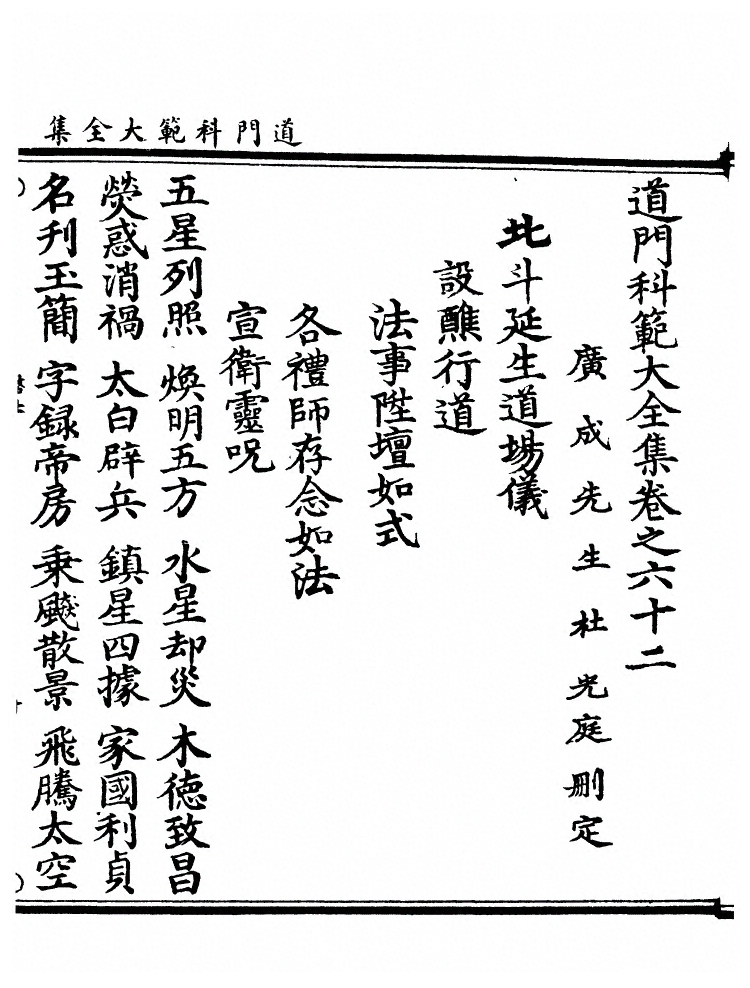 道門科範大全集
道門科範大全集卷之六十二
廣成先生杜光庭刪定
北斗延生道場儀
設醮行道
法事陞壇如式
各禮師存念如法
宣衛靈呪
五星列照 煥明五方 水星却災 木德致昌
熒惑消禍 太白辟兵 鎮星四據 家國利貞
名刋玉簡 字録帝房 乘飈散景 飛騰太空